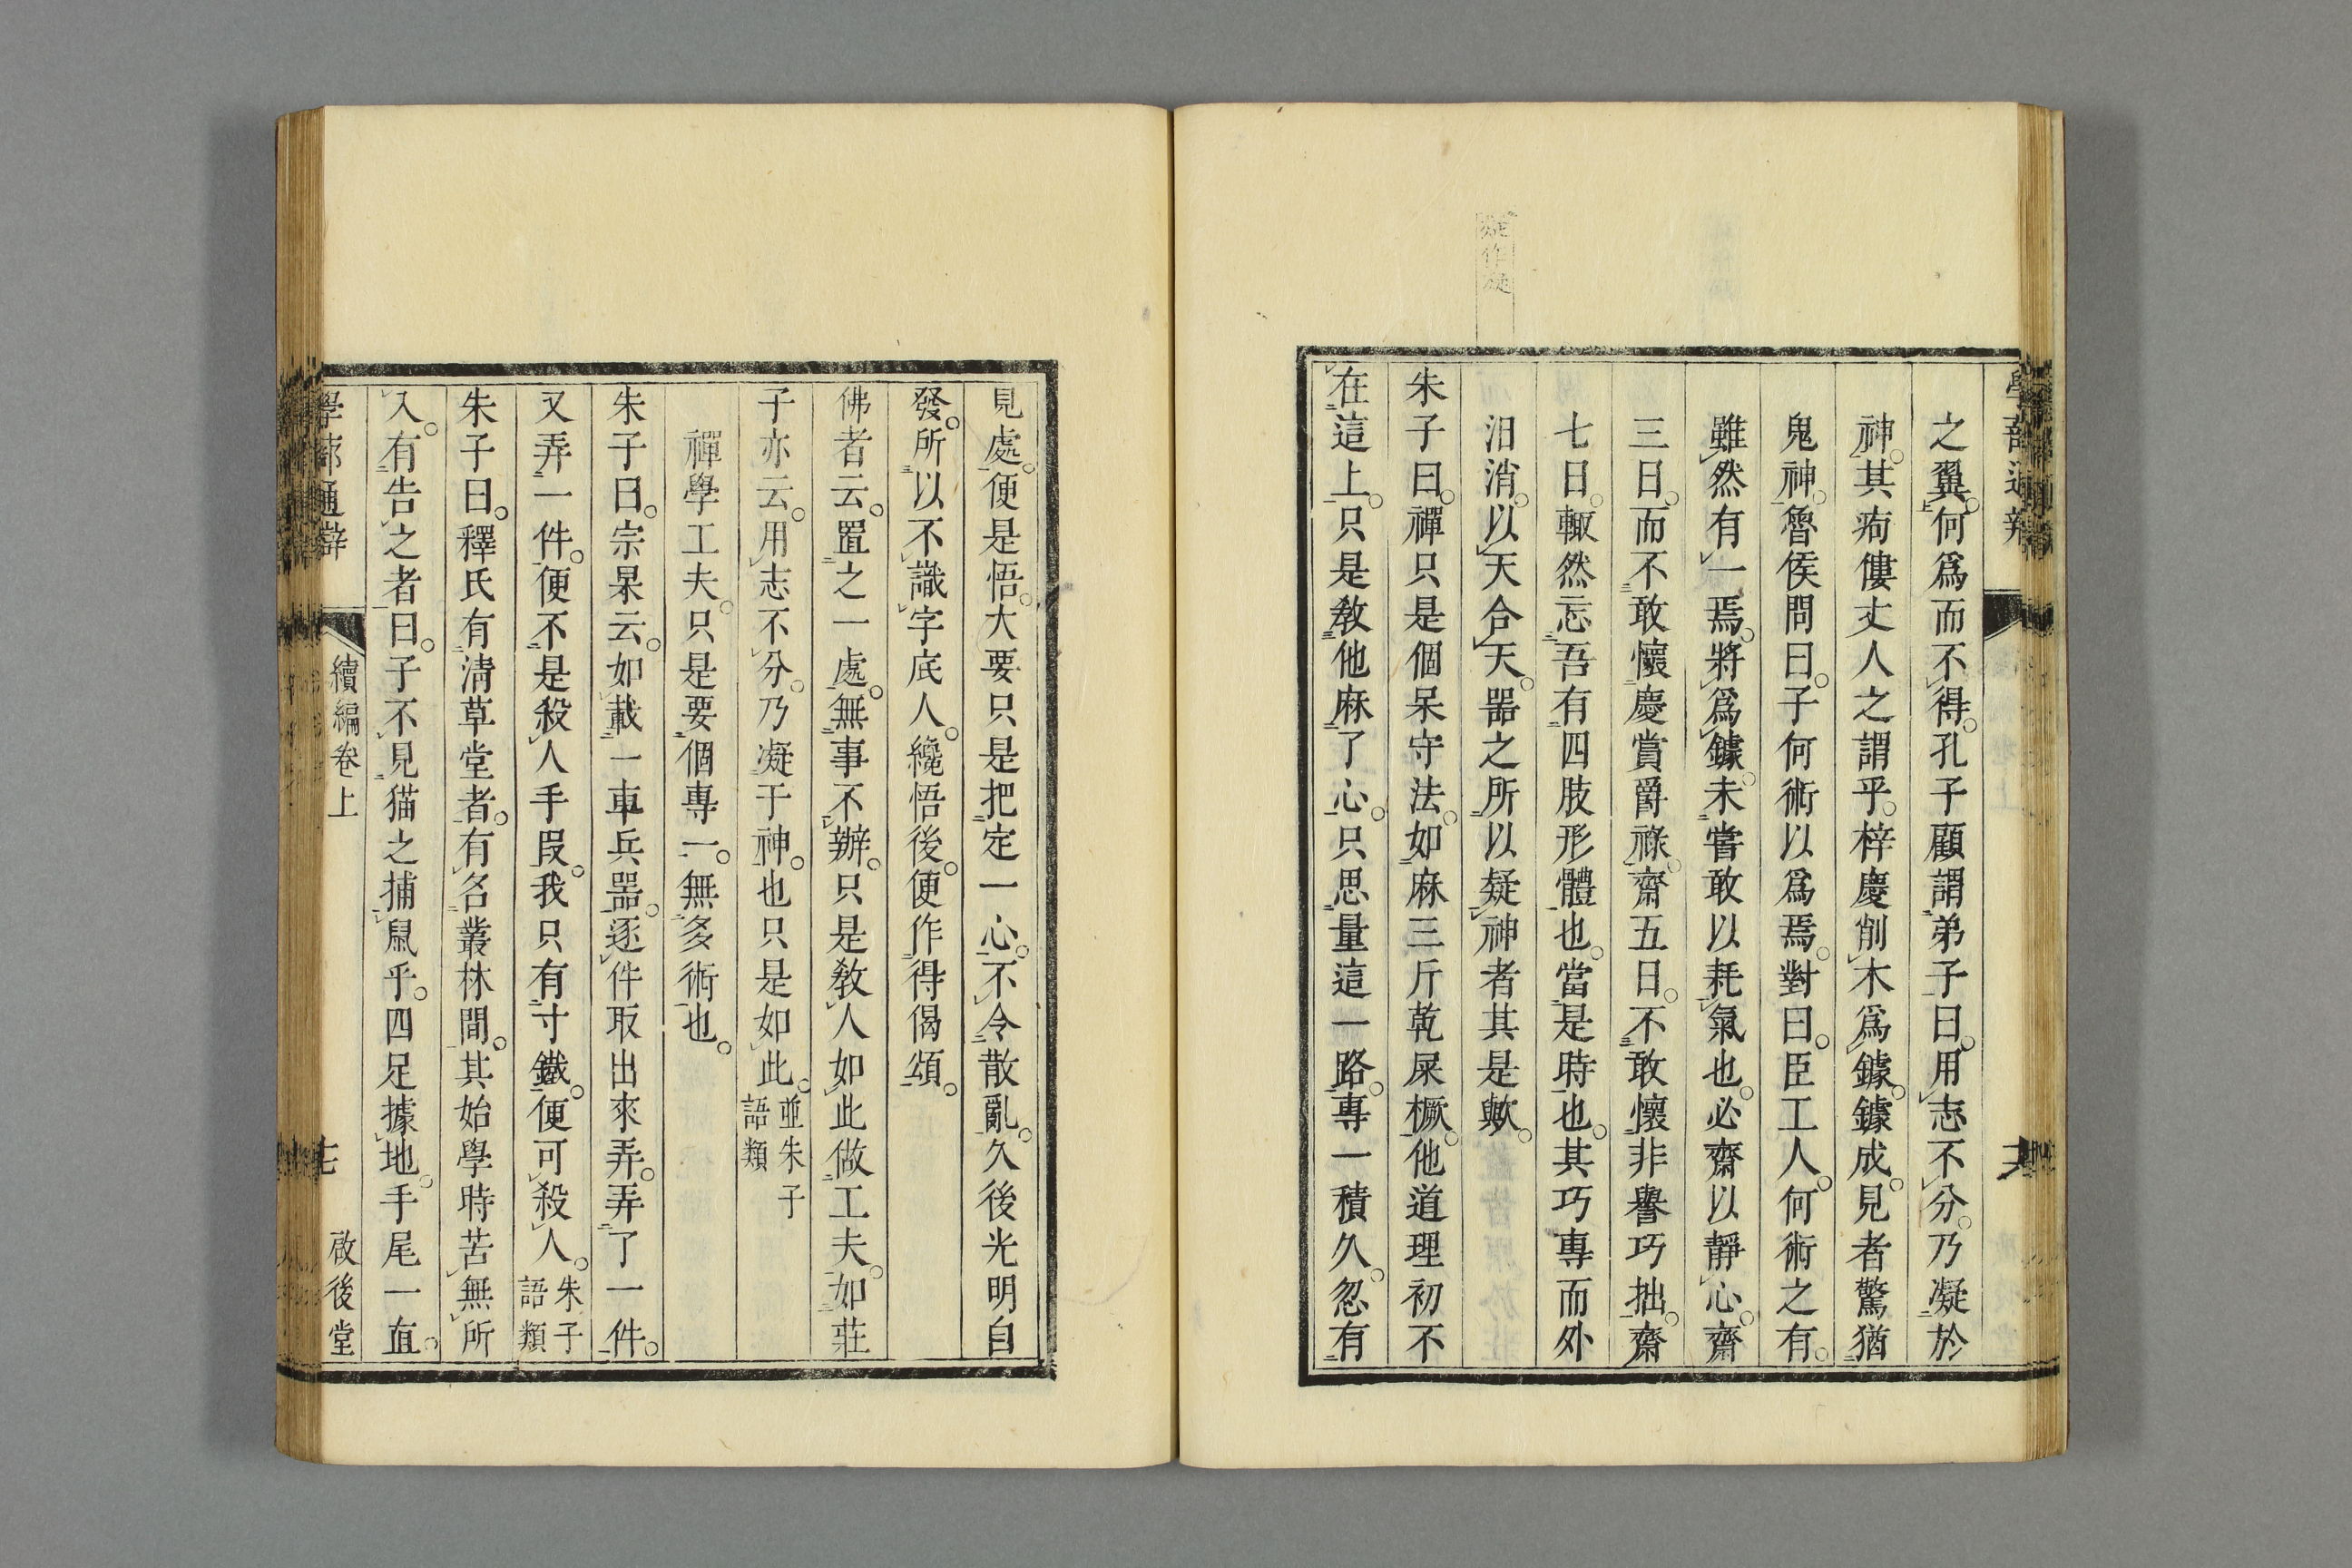 之翼。何爲而不得。孔子顧謂弟子曰。用志不分。乃凝於
神。其痀僂丈人之謂乎。梓慶削木爲鐻。鐻成。見者驚猶
鬼神。魯侯問曰。子何術以爲焉。對曰。臣工人。何術之有。
雖然有一焉。將爲鐻。未嘗敢以耗氣也。必齋以靜心。齋
三日。而不敢懷慶賞爵祿。齋五日。不敢懷非譽巧拙。齋
七日。輒然忘吾有四肢形體也。當是時也。其巧專而外
汨消。以天合天。器之所以疑神者其是歟。
疑作凝
朱子曰。禪只是個呆守法。如麻三斤乾屎橛。他道理初不
在這上。只是敎他麻了心。只思量這一路。專一積久。忽有
見處。便是悟。大要只是把定一心。不令散亂。久後光明自
發。所以不識字底人。纔悟後。便作得偈頌。
佛者云。置之一處。無事不辦。只是敎人如此做工夫。如莊
子亦云。用志不分。乃凝于神。也只是如此。並朱子語類
禪學工夫。只是要個專一。無多術也。
朱子曰。宗杲云。如載一車兵器。逐件取出來弄。弄了一件。
又弄一件。便不是殺人手段。我只有寸鐵。便可殺人。朱子語類
朱子曰。釋氏有淸草堂者。有名叢林間。其始學時苦無所
入。有告之者曰。子不見猫之捕鼠乎。四足據地。手尾一直。
學蔀通辯 續編卷上 十七 啟後堂